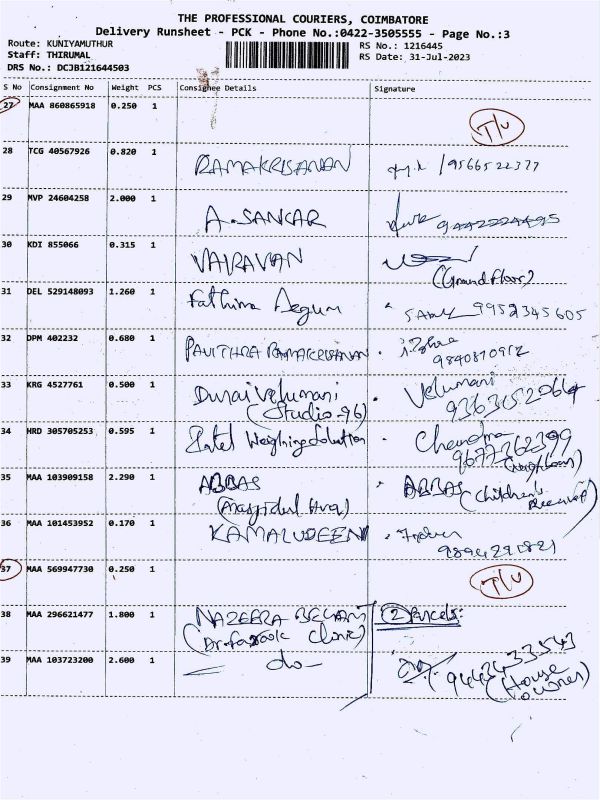 THE PROFESSIONAL COURIERS, COIMBATORE
Delivery Runsheet - PCK - Phone No.:0422-3505555 - Page No.:3
Route: KUNIYAMUTHUR
RS No.: 1216445
Staff: THIRUMAL
RS Date: 31-Jul-2023
DRS No.: DCJB121644503
S No Consignment No Weight PCS Consignee Details Signature
27 MAA 860865918 0.250 1 T/U
28 TCG 40567926 0.820 1 RAMAKRISANAN /9566522377
29 MVP 24604258 2.000 1 A.SANKAR 9442224495
30 KDI 855066 0.315 1 VAIRAVAN
(Ground floor)
31 DEL 529148093 1.260 1 Fathima Begum 9952345605
32 DPM 402232 0.680 1 PAVITHRA RAMAKRISHNAN
9840870912
33 KRG 4527761 0.500 1 Duraivelumani Velumani
(Studio-96) 9363152064
34 HRD 305705253 0.595 1 Intel Weighing Solution Chandra
9677362399
(Neighbour)
35 MAA 103909158 2.290 1 ABBAS ABBAS (Children's
(Masjidul Hua) Received)
36 MAA 101453952 0.170 1 KAMALUDEEN
9894291821
37 MAA 569947730 0.250 1 T/U
38 MAA 296621477 1.800 1 NAZEERA BEGAM (2) Parcels:
(Dr.farook clinic)
39 MAA 103723200 2.600 1 -do- 9443433543
(House
owner)